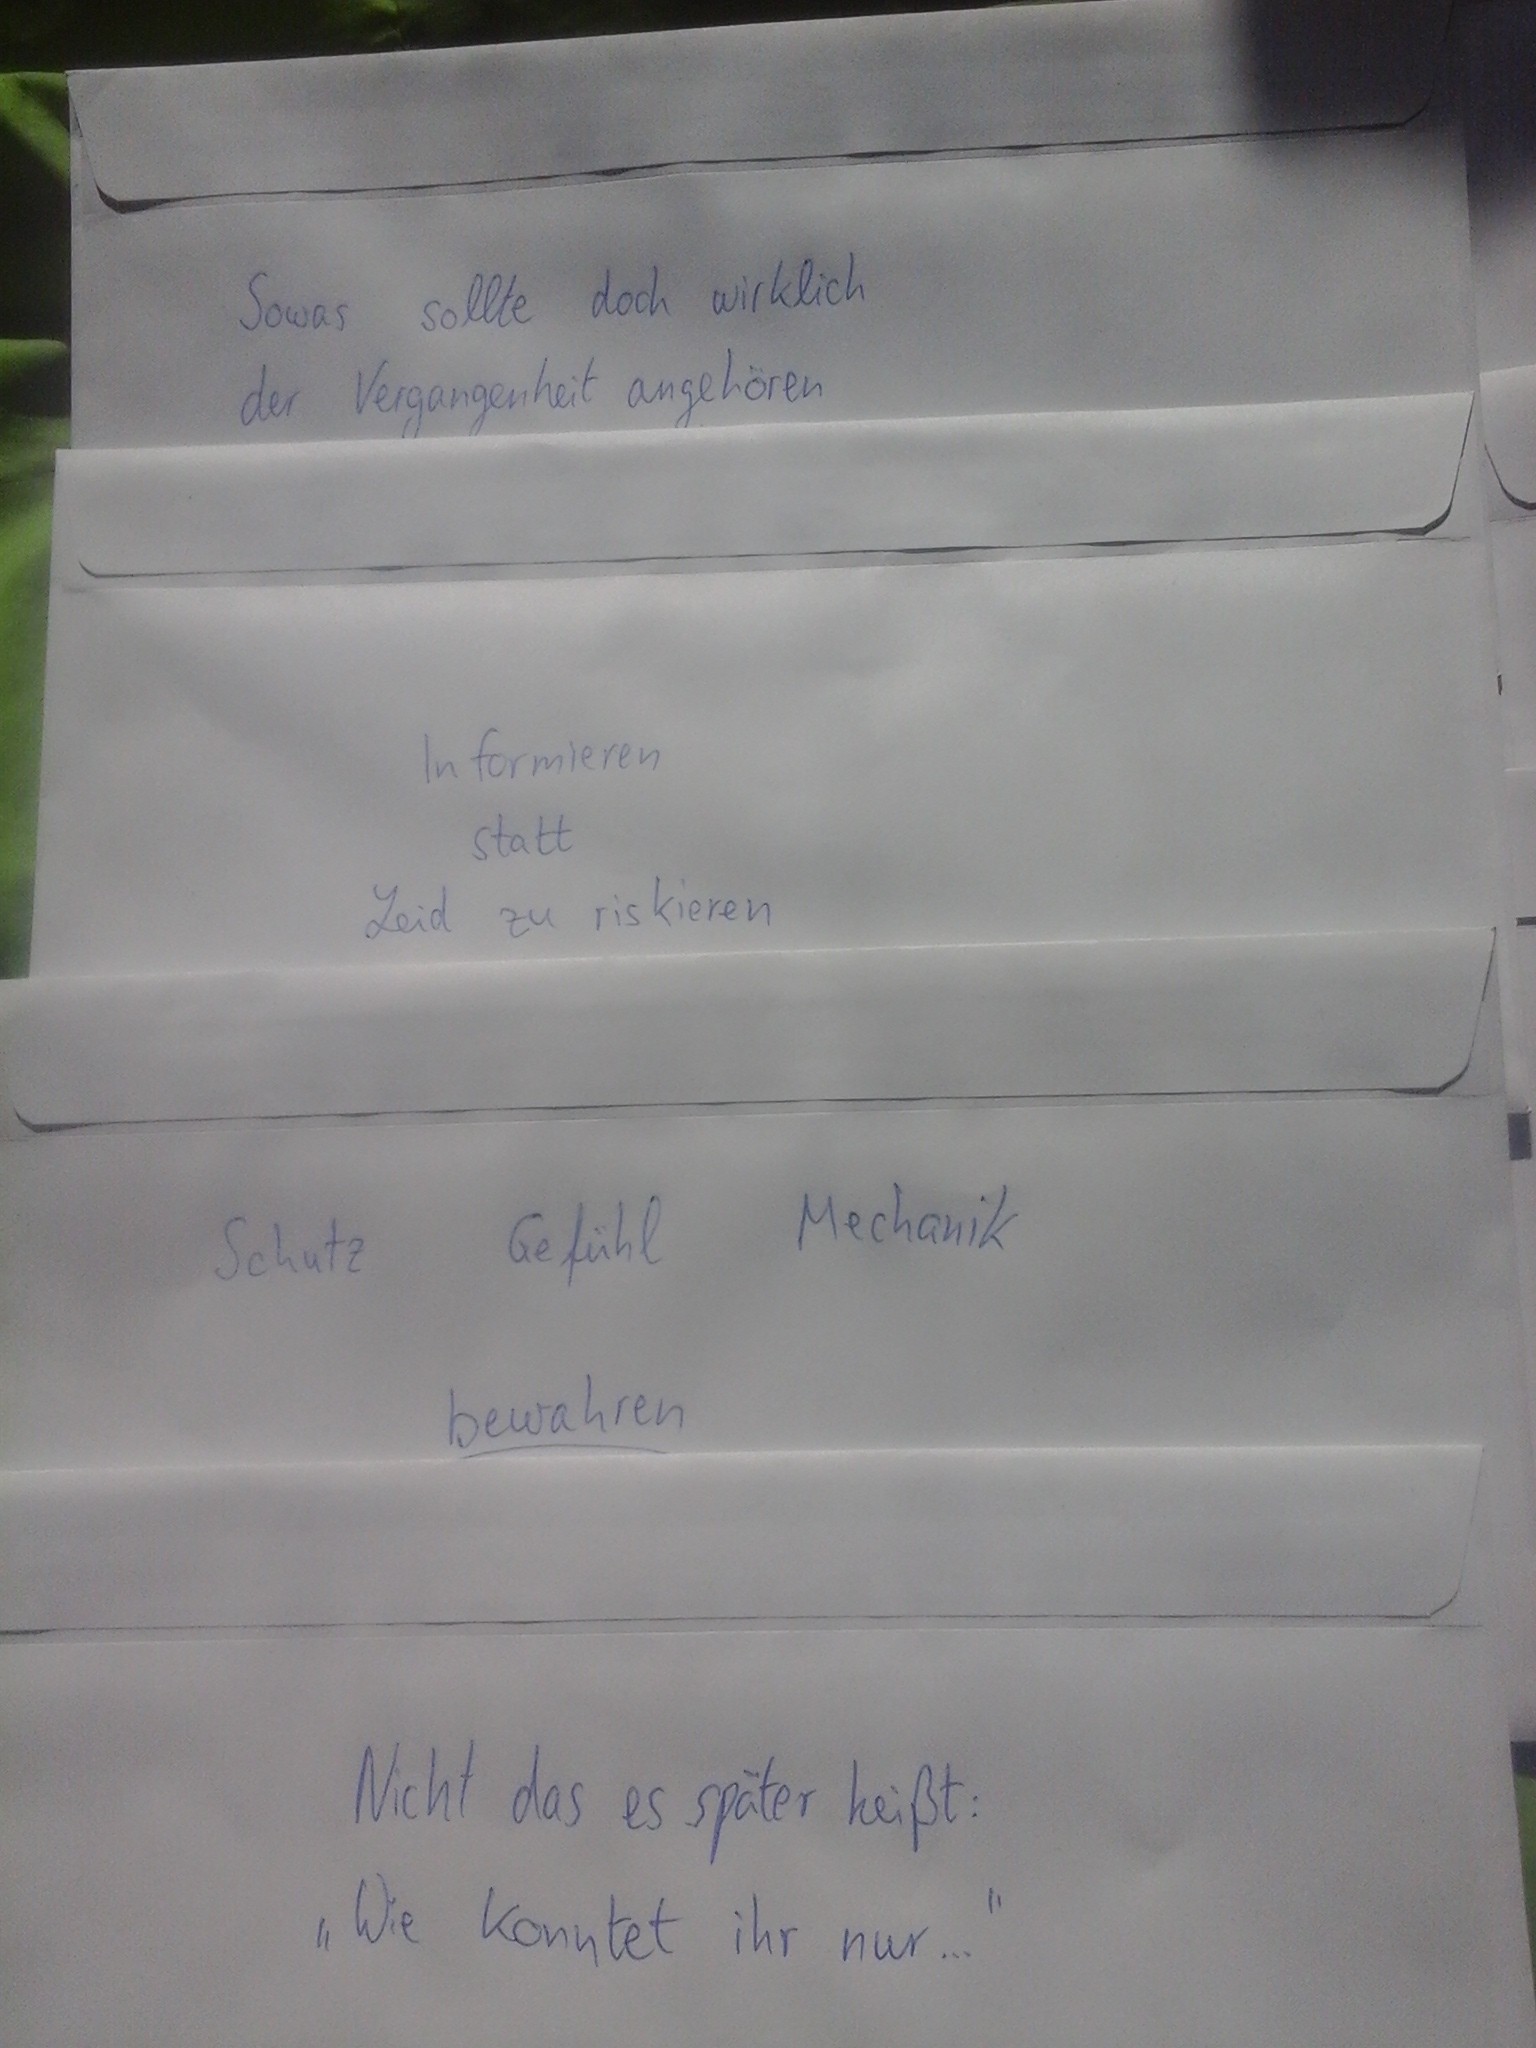 Sowas sollte doch wirklich
der Vergangenheit angehören
Informieren
statt
Leid zu riskieren
Schutz Gefühl Mechanik
bewahren
Nicht das es später heißt:
„Wie konntet ihr nur..."